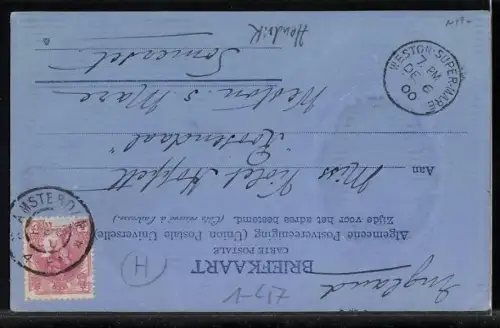 BRIEFKAART
CARTE POSTALE
Algemeene Postvereeniging (Union Postale Universelle)
Zijde voor het adres bestemd. (Côté réservé à l'adresse)
Aan Miss Violet Hoppett
"Rosendaal"
Weston s Mare
Somerset
England
Hendrik
H
AMSTERD
WESTON-SUPER-MARE
7 PM
DE 6
00